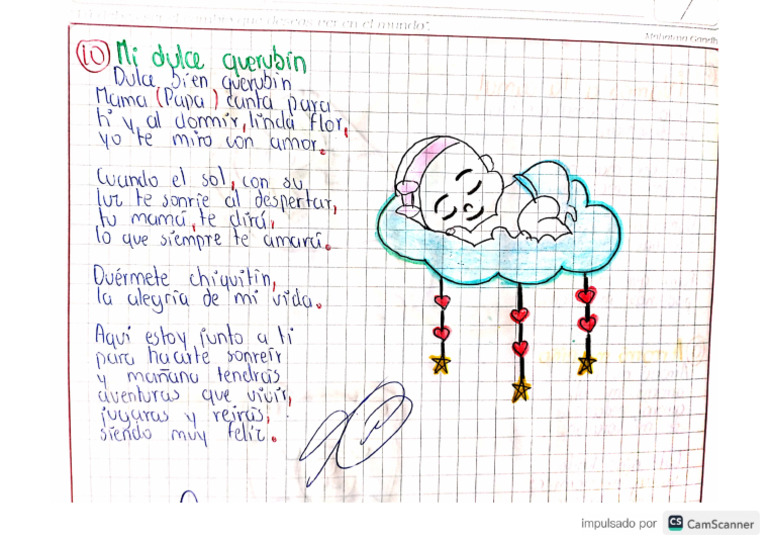 que deseas ver en el mundo".
Mahatma Gandh
10 Mi dulce querubín
Dulce bien querubin
Mama (Papa) canta para
ti y al dormir, linda flor,
yo te miro con amor.
Cuando el sol, con su
luz te sonrie al despertar,
tu mamá, te dirá,
lo que siempre te amará.
Duérmete chiquitín,
la alegría de mi vida.
Aquí estoy junto a ti
para hacerte sonreír
y mañana tendrás
aventuras que vivir,
jugaras y reiras,
siendo muy feliz.
impulsado por CS CamScanner